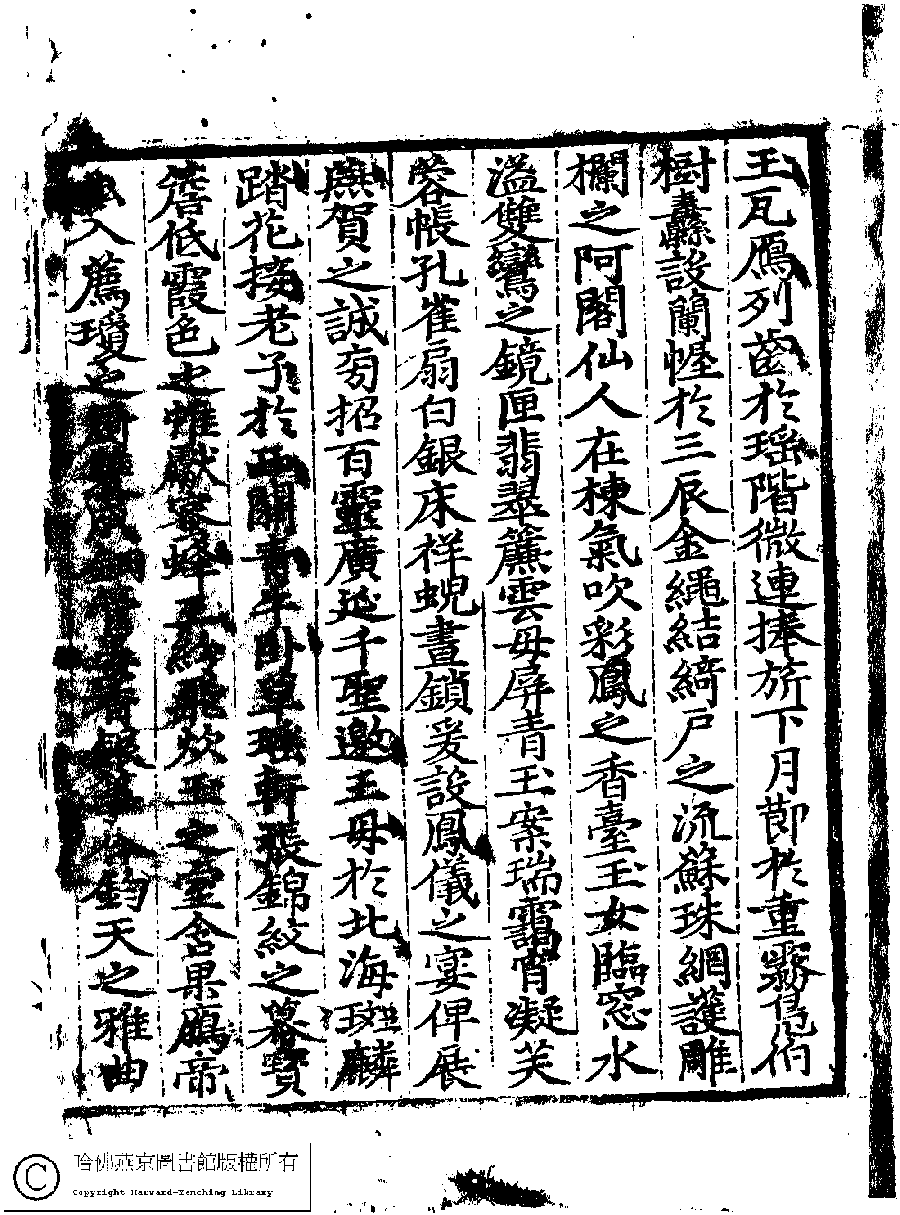 玉瓦鴈列齒於瑶階微連捧旂下月莭於重霧凴伯
樹纛設蘭幄於三辰金繩結綺戸之流蘇珠網護雕
欄之阿閣仙人在棟氣吹彩鳳之香臺玉女臨窓水
溢雙鸞之鏡匣翡翠簾雲母屏青玉案瑞靄宵凝芙
蓉帳孔雀扇白銀床祥蜺晝鎖爰設鳳儀之宴俾展
燕賀之誠旁招百靈廣延千聖邀王母於北海斑麟
踏花接老子於關青牛卧草瑶軒張錦紋之幕寳
簷低霞色之帷獻蜂王餘飛炊玉之室含果鴈帝
入薦瓊之成鈞天之雅曲
哈佛燕京圖書館版權所有
Copyright Harvard-Yenching Library